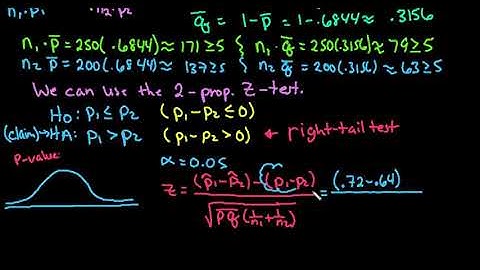 n₁·p₁ n₂·p₂ q̄ = 1-p̄ = 1-.6844 ≈ .3156
n₁·p̄ = 250(.6844) ≈ 171 ≥ 5 { n₁·q̄ = 250(.3156) ≈ 79 ≥ 5
n₂ p̄ = 200(.6844) ≈ 137 ≥ 5 { n₂ q̄ = 200(.3156) ≈ 63 ≥ 5
We can use the 2-prop. Z-test.
H₀: p₁ ≤ p₂ (p₁-p₂ ≤ 0)
(claim)→ HA: p₁ > p₂ (p₁-p₂ > 0) ← right-tail test
p-value: α = 0.05
z = (p̂₁-p̂₂)-(p₁-p₂) / √(p̄ q̄ (1/n₁ + 1/n₂)) = (.72-.64)